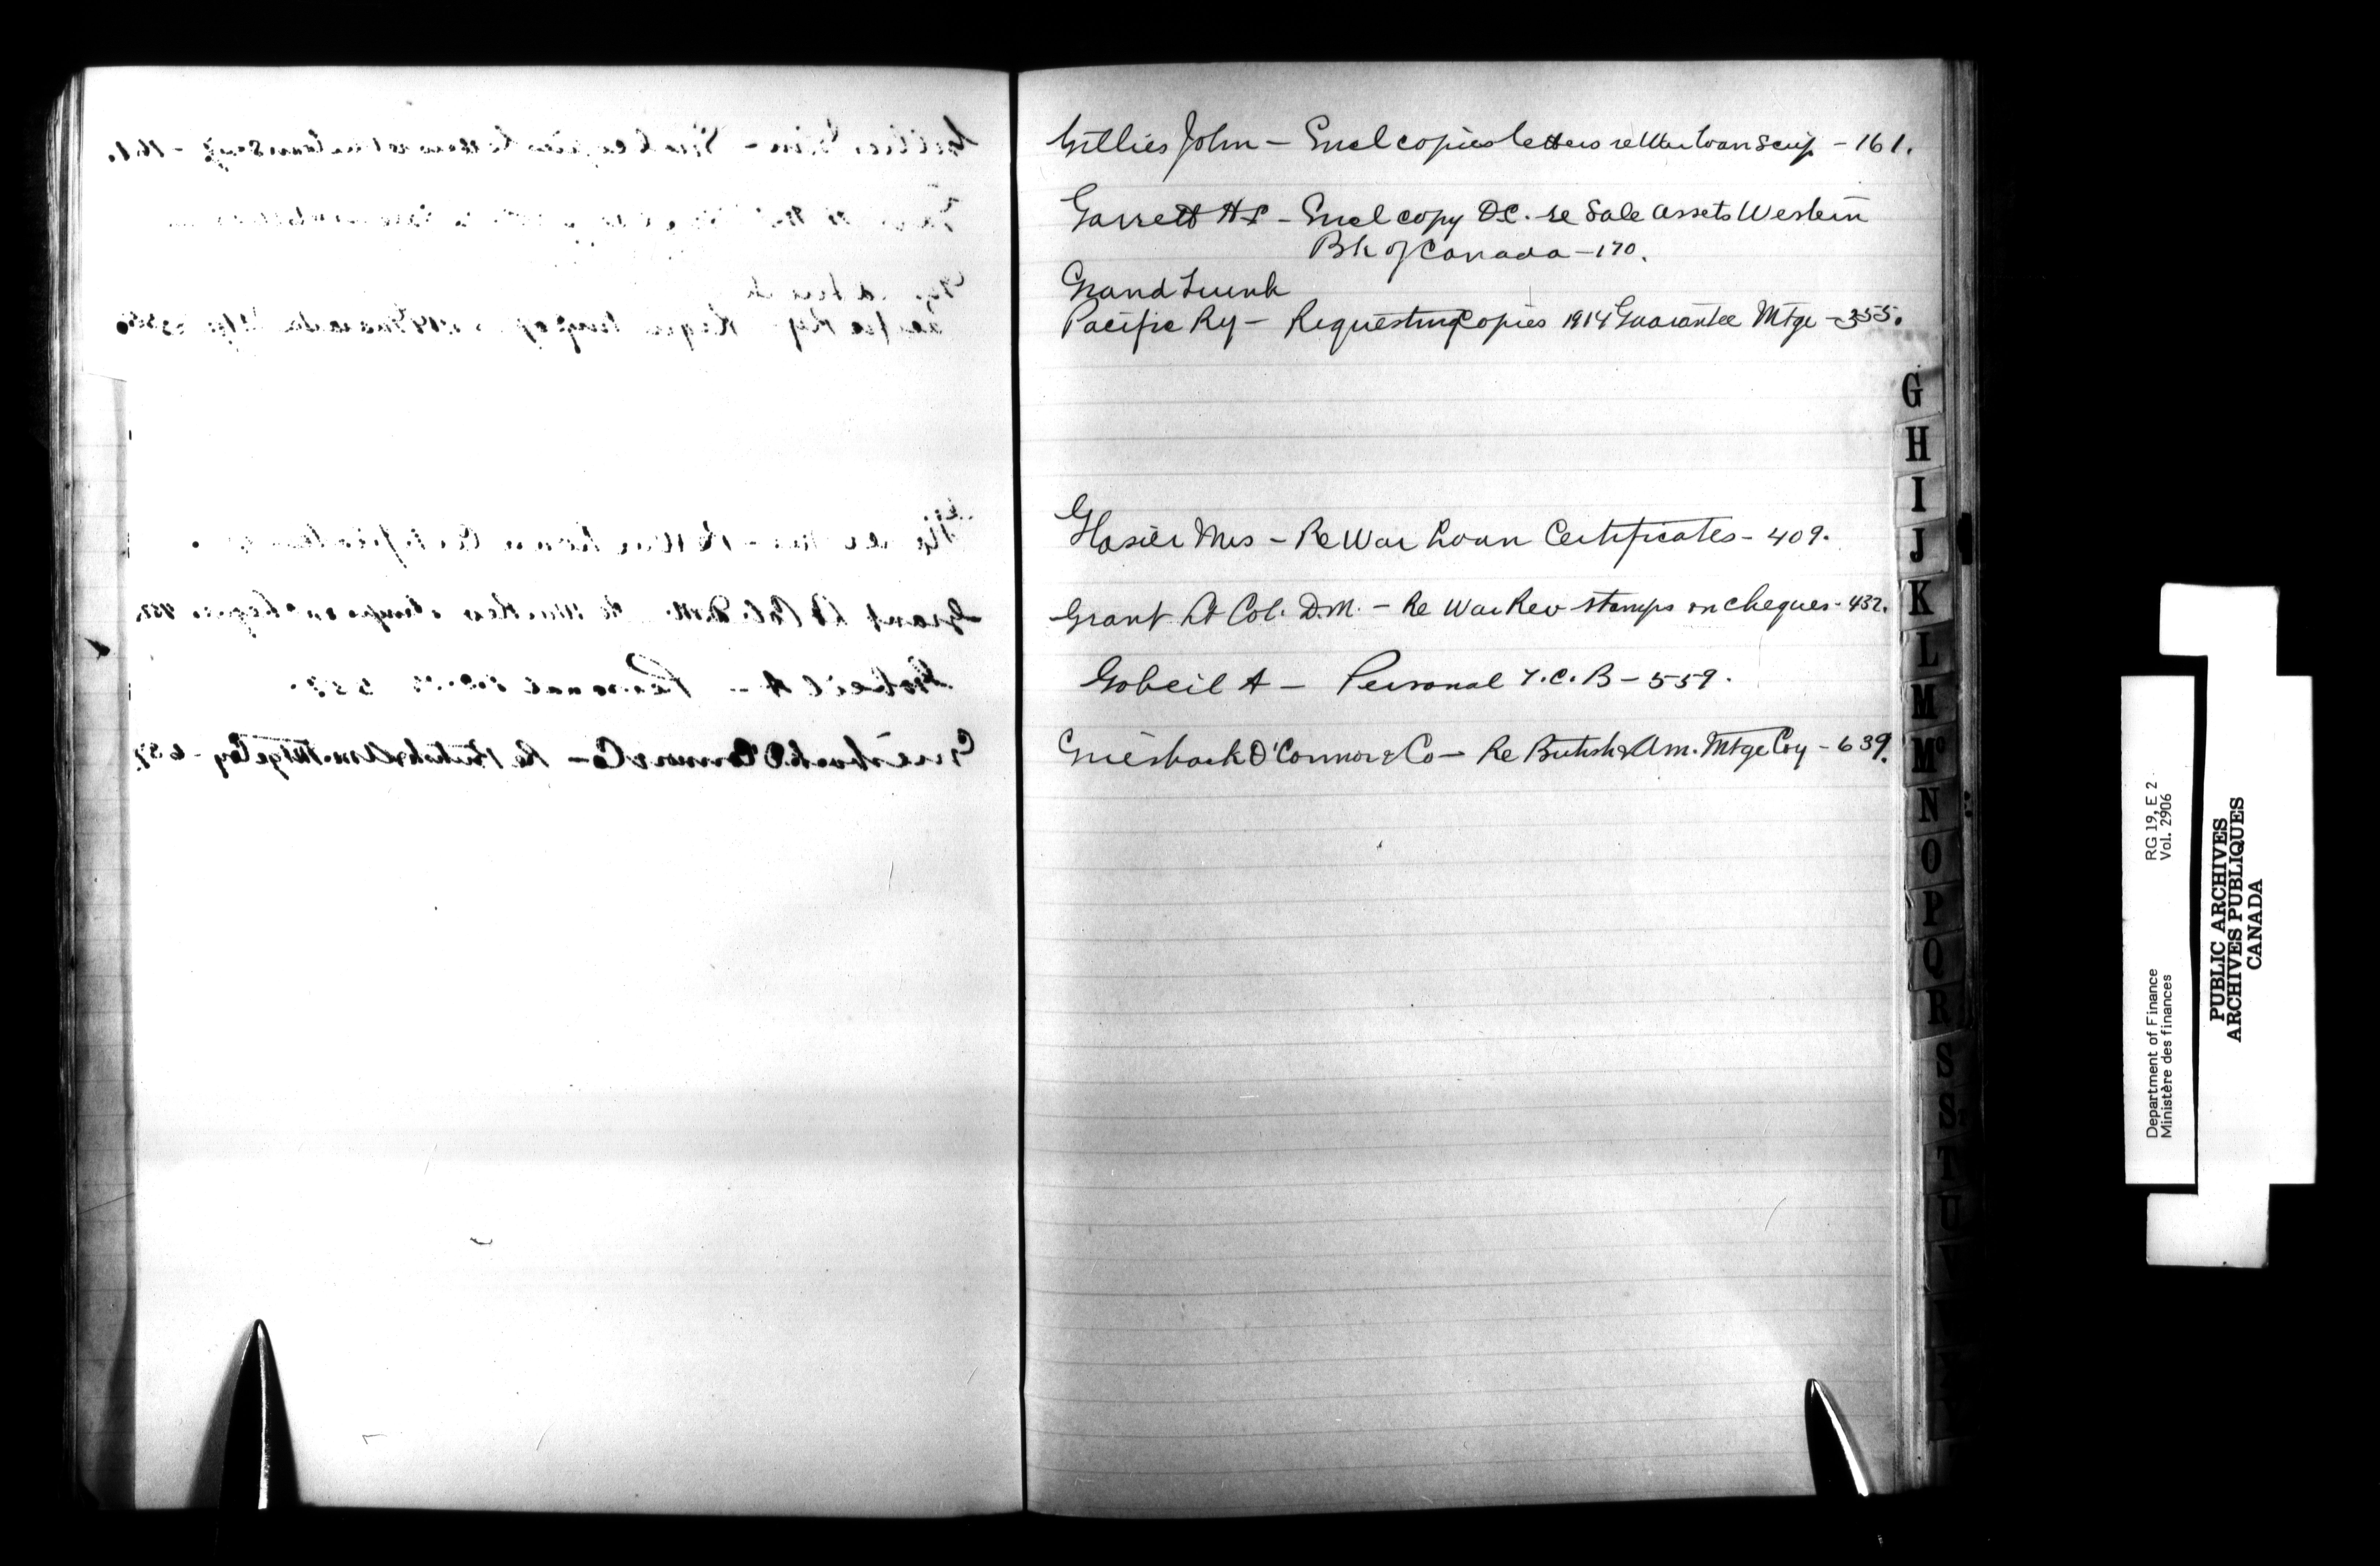 Gillies John - Encl copies letters re War Loan Scrip - 161.
Garrett H S - Encl copy O.C. re Sale Assets Western
Bk of Canada - 170.
Grand Trunk
Pacific Ry - Requesting Copies 1914 Guarantee Mtge - 355.
Glasier Mrs - Re War Loan Certificates - 409.
Grant Lt Col. D.M. - Re War Rev stamps on cheques - 432.
Gobeil A - Personal T.C.B - 559.
Griesbach O'Connor & Co - Re British & Am. Mtge Coy - 639.
G
H
I
J
K
L
M
Mc
N
O
P
Q
R
S
S
T
U
V
Department of Finance RG 19, E 2
Ministère des finances Vol. 2906
PUBLIC ARCHIVES
ARCHIVES PUBLIQUES
CANADA